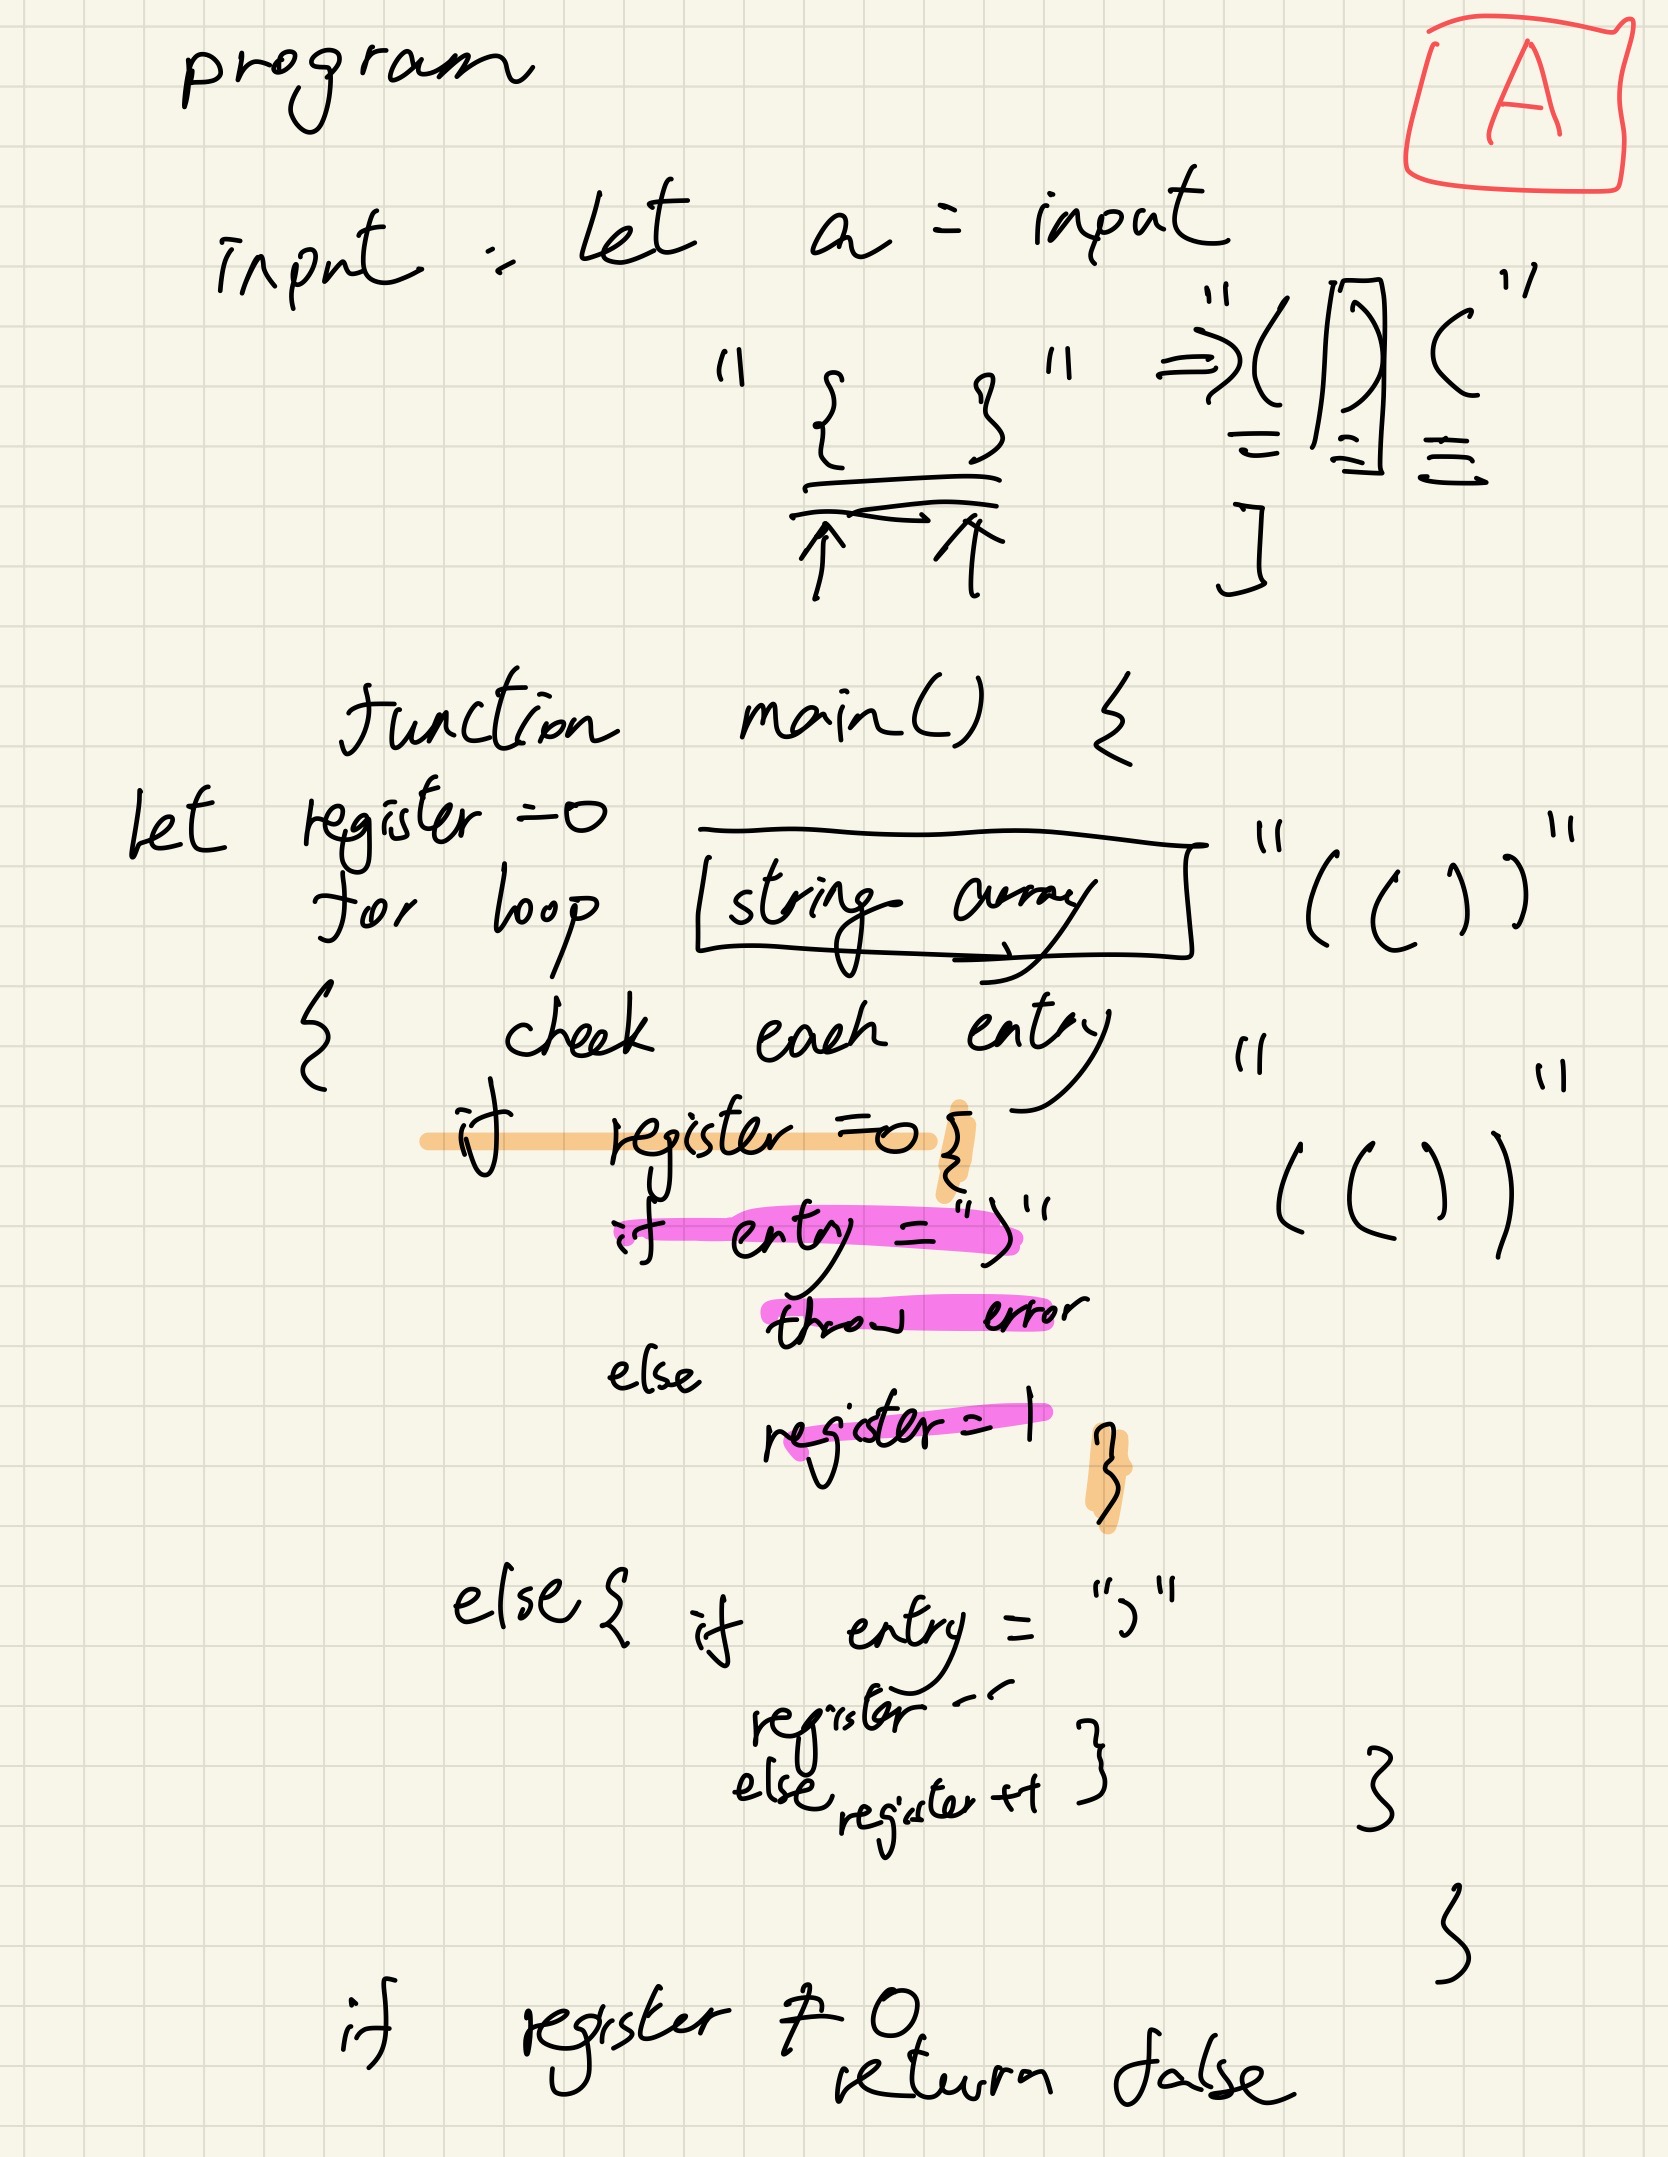 program
A
input : let a = input
"{ }" => "( ) ("
]
function main() {
let register = 0
for loop [string array] "(())"
{ check each entry
"(())"
if register = 0 {
if entry = ")"
throw error
else
register = 1
}
else { if entry = ")"
register --
else register ++ }
}
}
if register ≠ 0
return false